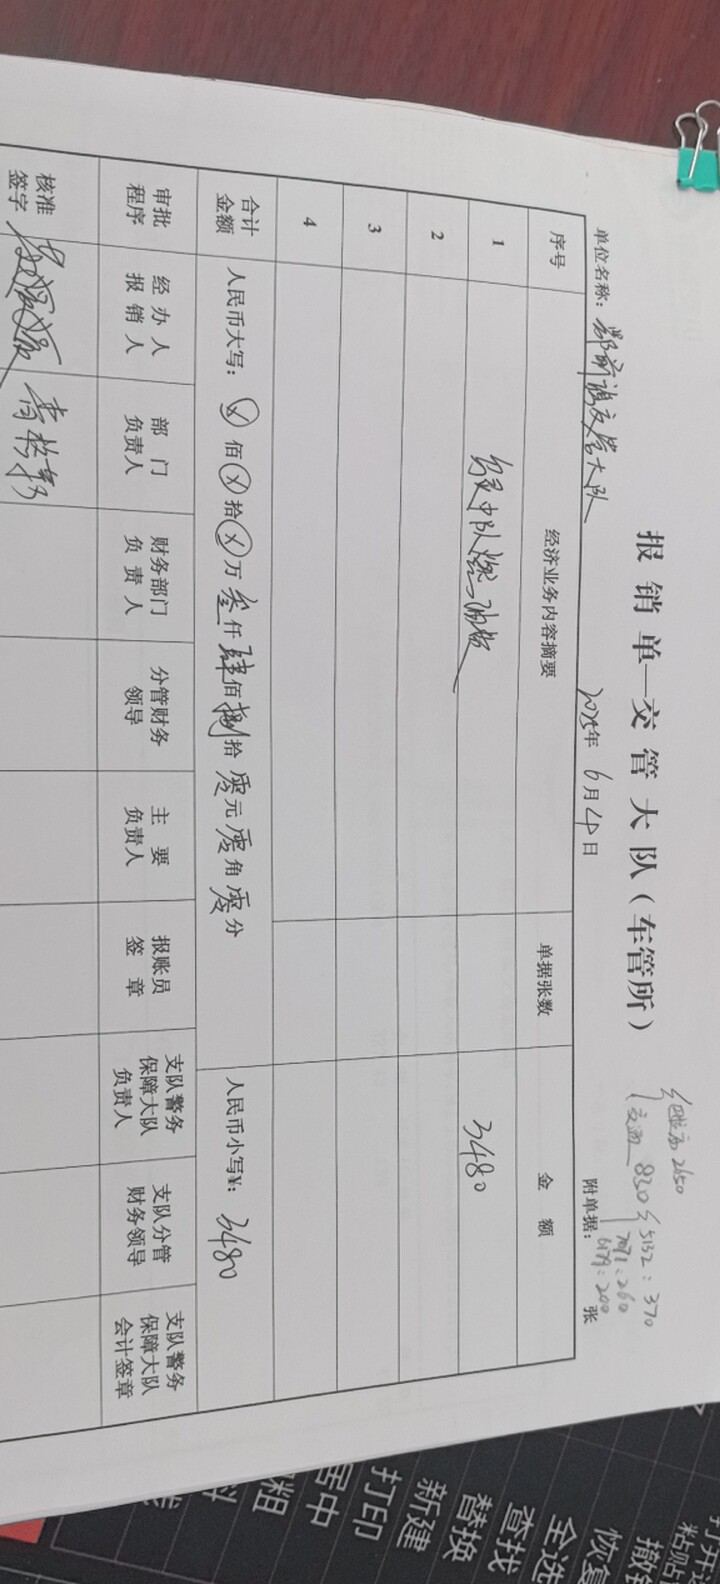 报销单—交管大队（车管所）
2650
830 5132：370
7071：260
6179：200
单位名称：鄯前旗交管大队 2025年6月4日 附单据： 张
序号 经济业务内容摘要 单据张数 金额
1 中队燃油费 3480
2
3
4
合计金额 人民币大写：ⓧ佰ⓧ拾ⓧ万叁仟肆佰捌拾零元零角零分 人民币小写¥：3480
审批程序 经办人报销人 部门负责人 财务部门负责人 分管财务领导 主要负责人 报账员签章 支队警务保障大队负责人 支队分管财务领导 支队警务保障大队会计签章
核准签字
打开
粘贴
撤销
恢复
全选
查找
替换
新建
打印
居中